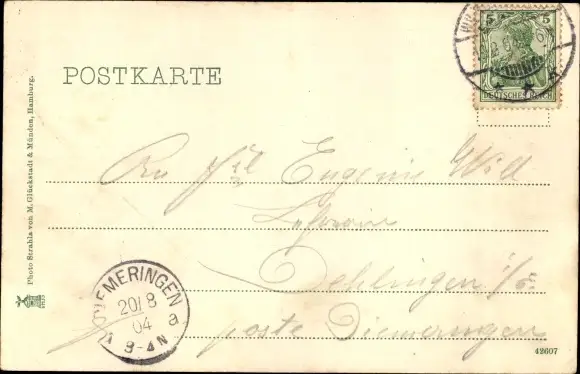 5
DEUTSCHES REICH
POSTKARTE
Photo Strahla von M. Glückstadt & Münden, Hamburg.
Eugenie Will
Dehlingen i/
poste Diemeringen
DIEMERINGEN
20/8
04
a
8-9 N
42607